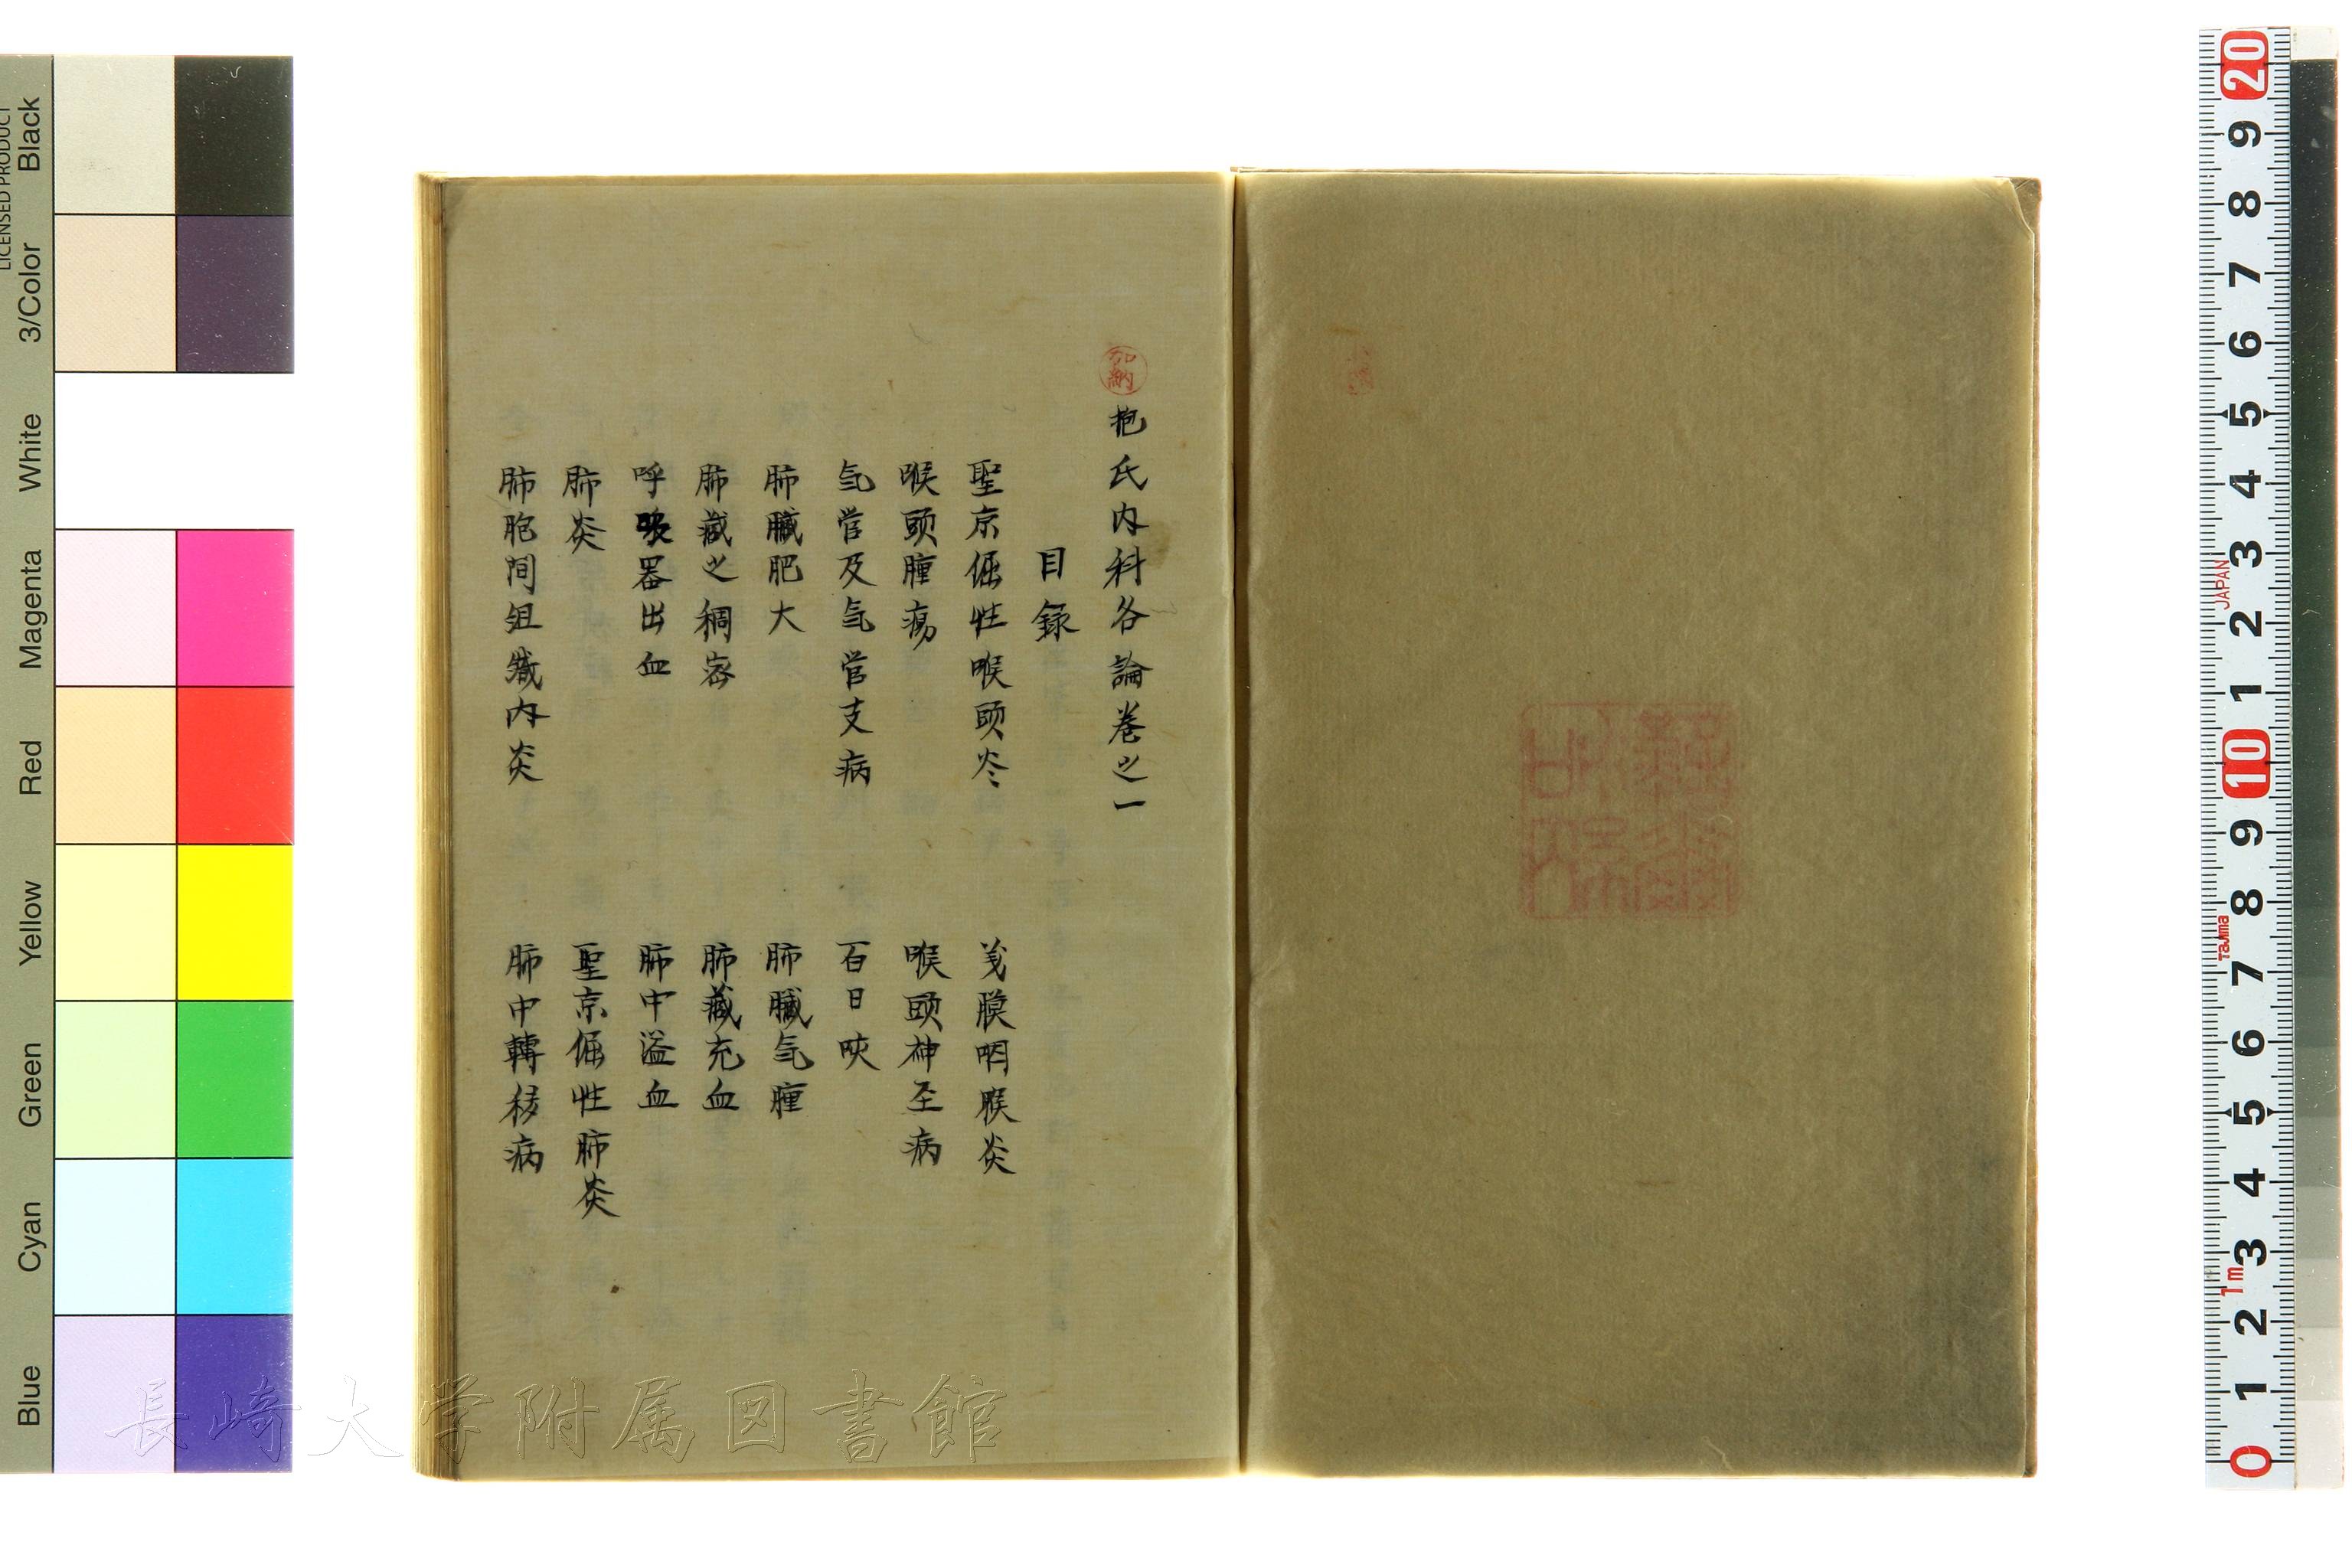 加納
抱氏内科各論巻之一
目録
聖京倔性喉頭炎
義膜咽喉炎
喉頭腫瘍
喉頭神圣病
気管及気管支病
百日咳
肺臓肥大
肺臓気腫
肺蔵之稠密
肺蔵充血
呼吸器出血
肺中溢血
肺炎
聖京倔性肺炎
肺胞间組織内炎
肺中轉移病
長崎大学附属図書館
LICENSED PRODUCT
Black
3/Color
White
Magenta
Red
Yellow
Green
Cyan
Blue
20
9
8
7
6
5
4
3
JAPAN
2
1
10
9
8
Tajima
7
6
5
4
3
1m
2
1
0